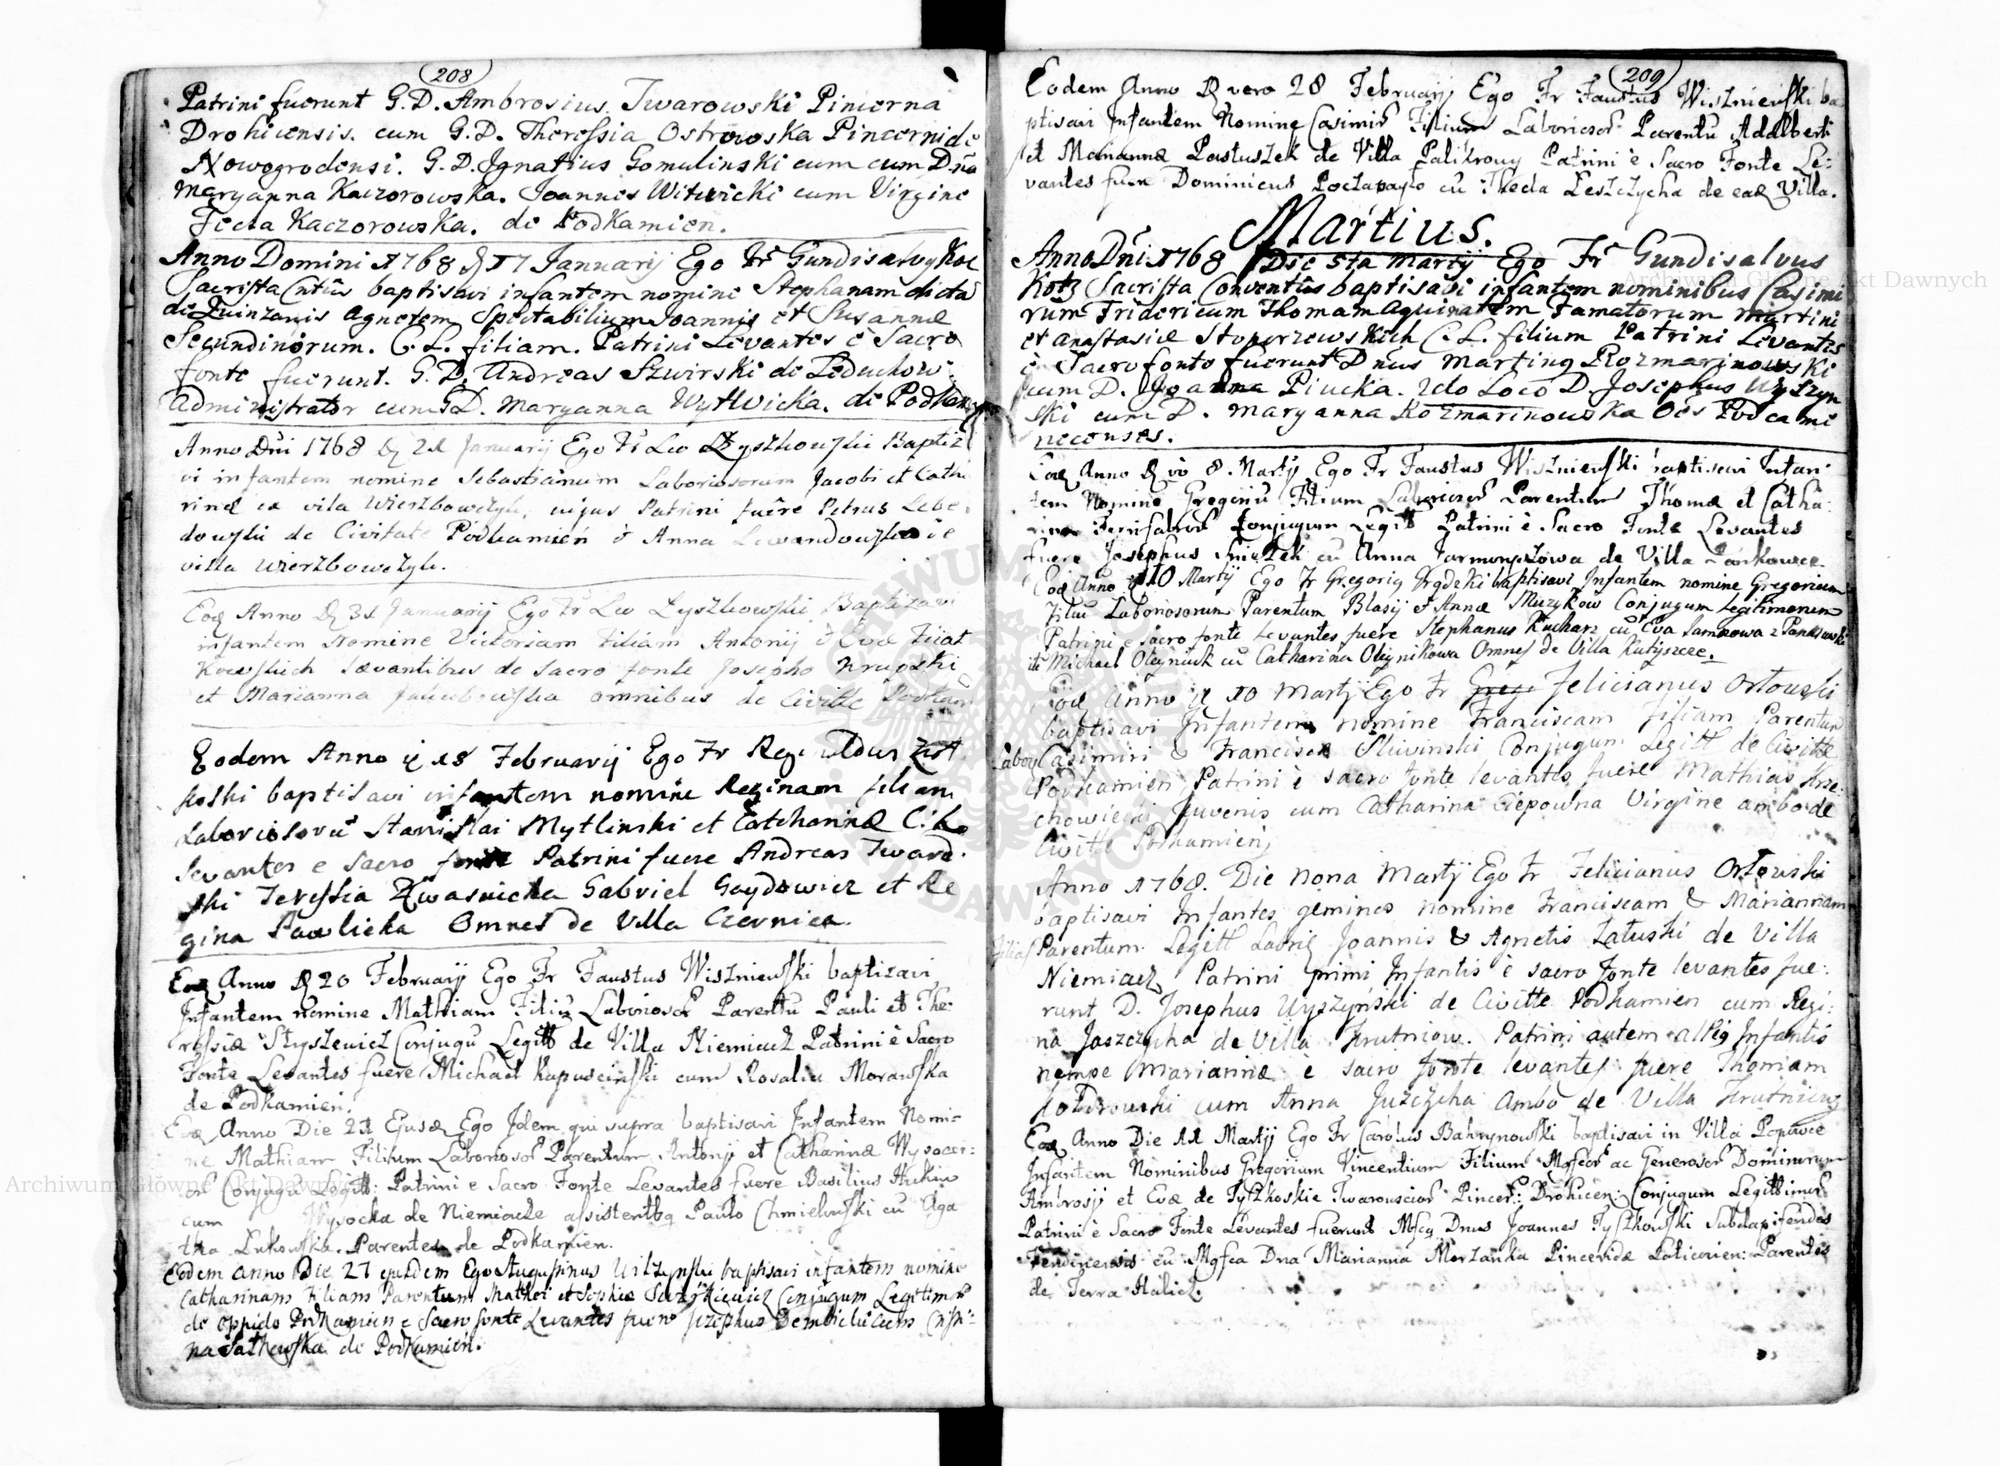 208
Patrini fuerunt G.D. Ambrosius Twarowski Pincerna
Drohicensis. cum G.D. Theressia Ostrowska Pincernide
Nowogrodensi. G.D. Ignatius Gomulinski cum cum Dna
Maryanna Kaczorowska. Joannes Witwicki cum Virgine
Tecla Kaczorowska. de Podkamien.
Anno Domini 1768 D 17 Januarij Ego Fr Gundisalvus Koc
Sacrista Cntus baptisavi infantem nomine Stephanam dicta
de Quinzanis Agnetem Spectabilium Joannis et Susannæ
Secundinorum. C. L. filiam. Patrini Levantes è Sacro
fonte fuerunt. G. D. Andreas Szwirski de
Administrator cum GD. Maryanna Wytwicka. de Podkam
Anno Dni 1768 D 21 Januarij Ego Fr Leo Łyszkowski Baptiz
vi infantem nomine Sebastianum Laboriosorum Jacobi et Cathe
rinæ ex vila Wierzbowczyk, cujus Patrini fuêre Petrus Lebe
dowski de Civitate Podkamień & Anna Lewandowska de
villa Wierzbowczyk.
Eod Anno D 31 Januarij Ego Fr Leo Łyszkowski Baptizavi
infantem Nomine Victoriam Filiam Antonij &
Kowskich Levantibus de Sacro fonte Josepho Krupski
et Marianna Jakubowska omnibus de Civitte Podkam
Eodem Anno D 18 Februarij Ego Fr
baptisavi infantem nomine Reginam filiam
Laboriosorũ Stanislai Mytlinski et Catcharinæ C:L
Levantes e Sacro fonte Patrini fuere Andreas Tward
ski Teressia Kwasnicka Gabriel Gaydowicz et Re
gina Pawlicka Omnes de Villa Czernica.
Eod Anno D 20 Februarij Ego Fr Faustus Wiszniewski baptizavi
Infantem nomine Mathiam Filiũ Laborioso Parentũ Pauli et The
ressiæ Styszewicz Conjugũ Legitt de Villa Niemiacz Patrini è Sacro
Fonte Levantes fuere Michael Kapuscinski cum Rosalia Morawska
de Podkamien.
Eod Anno Die 21 Ejusd Ego Idem qui supra baptisavi Infantem Nomi-
ne Mathiam Filium Laborioso Parentum Antonij et Catharinæ Wysocc:
or Conjugũ Legitt: Patrini e Sacro Fonte Levantes fuere Basilius
cum Wysocka de Niemiacze assistentbq Paulo Chmielewski cũ Aga
tha Łukowska. Parentes de Podkamien.
Eodem anno Die 27 ejusdem Ego Augustinus Wilzynski baptisavi infantem nomine
Catharinam Filiam Parentum Mathei et Sophiæ Conjugum Legitimor
de oppido Podkamien e Sacro fonte Levantes fuere Josephus cum Chris
na Satkowska de Podkamien.
209
Eodem Anno D vero 28 Februarij Ego Fr Faustus Wiszniewski ba
ptisavi Infantem Nomine Casimir Filium Laborioso Parentũ Adalberti
et Mariannæ Pastuszek de Villa Palikrowy Patrini è Sacro Fonte Le-
vantes fuere Dominicus cũ Thecla Leszczycha de ead Villa.
Martius.
Anno Dni 1768 Die 5ta Martij Ego Fr Gundisalvus
Kotz Sacrista Conventus baptisavi infantem nominibus Casimi
rum Fridericum Thomam Aquinatem Famatorum Martini
et Anastasiæ Stoporzewskich C. L. filium Patrini Levantes
è Sacro fonte fuerunt Dnus Martinq Rozmarinowski
cum D. Joanna Piucka. 2do Loco D. Josephus Wyszyn
ski cum D. Maryanna Rozmarinowska Oes Podcami
necenses.
Eod Anno D vo 8. Martij Ego Fr Faustus Wiszniewski baptisavi Infan
tem Nomine Gregoriũ Filium Laborioso Parentum Thomæ et Catha:
rinæ Conjugum Legitt Patrini è Sacro Fonte Levantes
fuere Josephus cũ Anna de Villa
Eod Anno D 10 Martij Ego Fr Gregoriq baptisavi Infantem nomine Gregorium
Filiũ Laboriosorum Parentum Blasij et Annæ Muzykow Conjugum Legitimorum
Patrini e Sacro fonte Levantes fuere Stephanus Kucharz cũ Eva
itẽ Michael Oleyniuk cũ Catharina Oleynikowa Omnes de Villa
Eod Anno D 10 Martij Ego Fr Felicianus Orłowski
baptisavi Infantem nomine Franciscam filiam Parentum
Labor Casimiri & Franciscæ Sliwinski Conjugum Legitt de Civitte
Podkamien Patrini è sacro fonte levantes fuere Mathias Krze
chowiecki Juvenis cum Catharina Virgine ambo de
Civitte Podkamien
Anno 1768. Die Nona Martij Ego Fr Felicianus Orłowski
baptisavi Infantes geminos nomine Franciscam & Mariannam
filias Parentum Legitt Labriq Joannis & Agnetis Załuski de Villa
Niemiacz Patrini primi Infantis è sacro fonte levantes fue:
runt D. Josephus Wyszyński de Civitte Podkamien cum Regi:
na Jaszczycha de Villa Hrutniow. Patrini autem altiq Infantis
nempe Mariannæ è sacro fonte levantes fuere Thomam
cum Anna Juszczycha Ambo de Villa
Eod Anno Die 11 Martij Ego Fr Carolus Bahrynowski baptisavi in Villa Popowce
Infantem Nominibus Gregorium Vincentium Filium Mgfcor ac Generosor Dominorum
Ambrosij et Evæ de Tyszkoskie Twarowscior Pincer: Drohicen: Conjugum Legittimor
Patrini è Sacro Fonte Levantes fuerunt Mfcq Dnus Joannes Tyszkowski Subdapiferides
cũ Mgfca Dna Marianna Morzanka Pinceridæ Laticzien: Parentes
de Terra Halicz.
Archiwum Główne Akt Dawnych
Archiwum Główne Akt Dawnych
ARCHIWUM
DAWNYCH